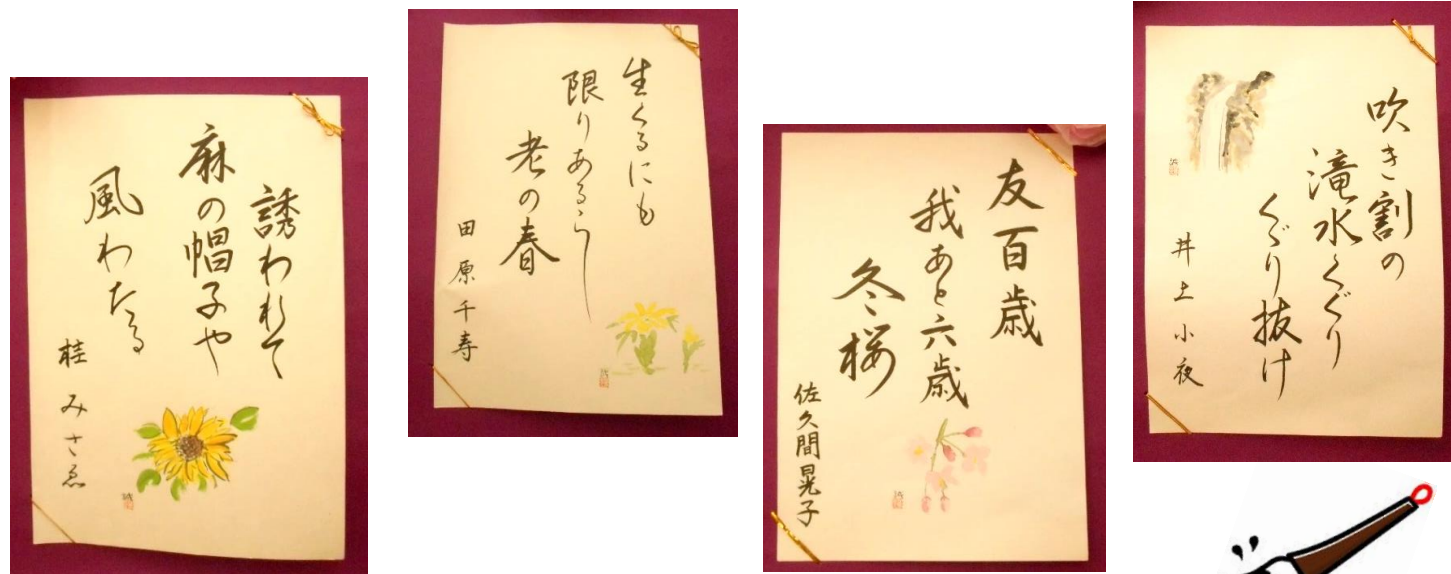 誘われて
麻の帽子や
風わたる
桂 みさゑ
生くるにも
限りあるらし
老の春
田原千寿
友百歳
我あと六歳
冬桜
佐久間晃子
吹き割の
滝水くぐり
くぐり抜け
井上小夜